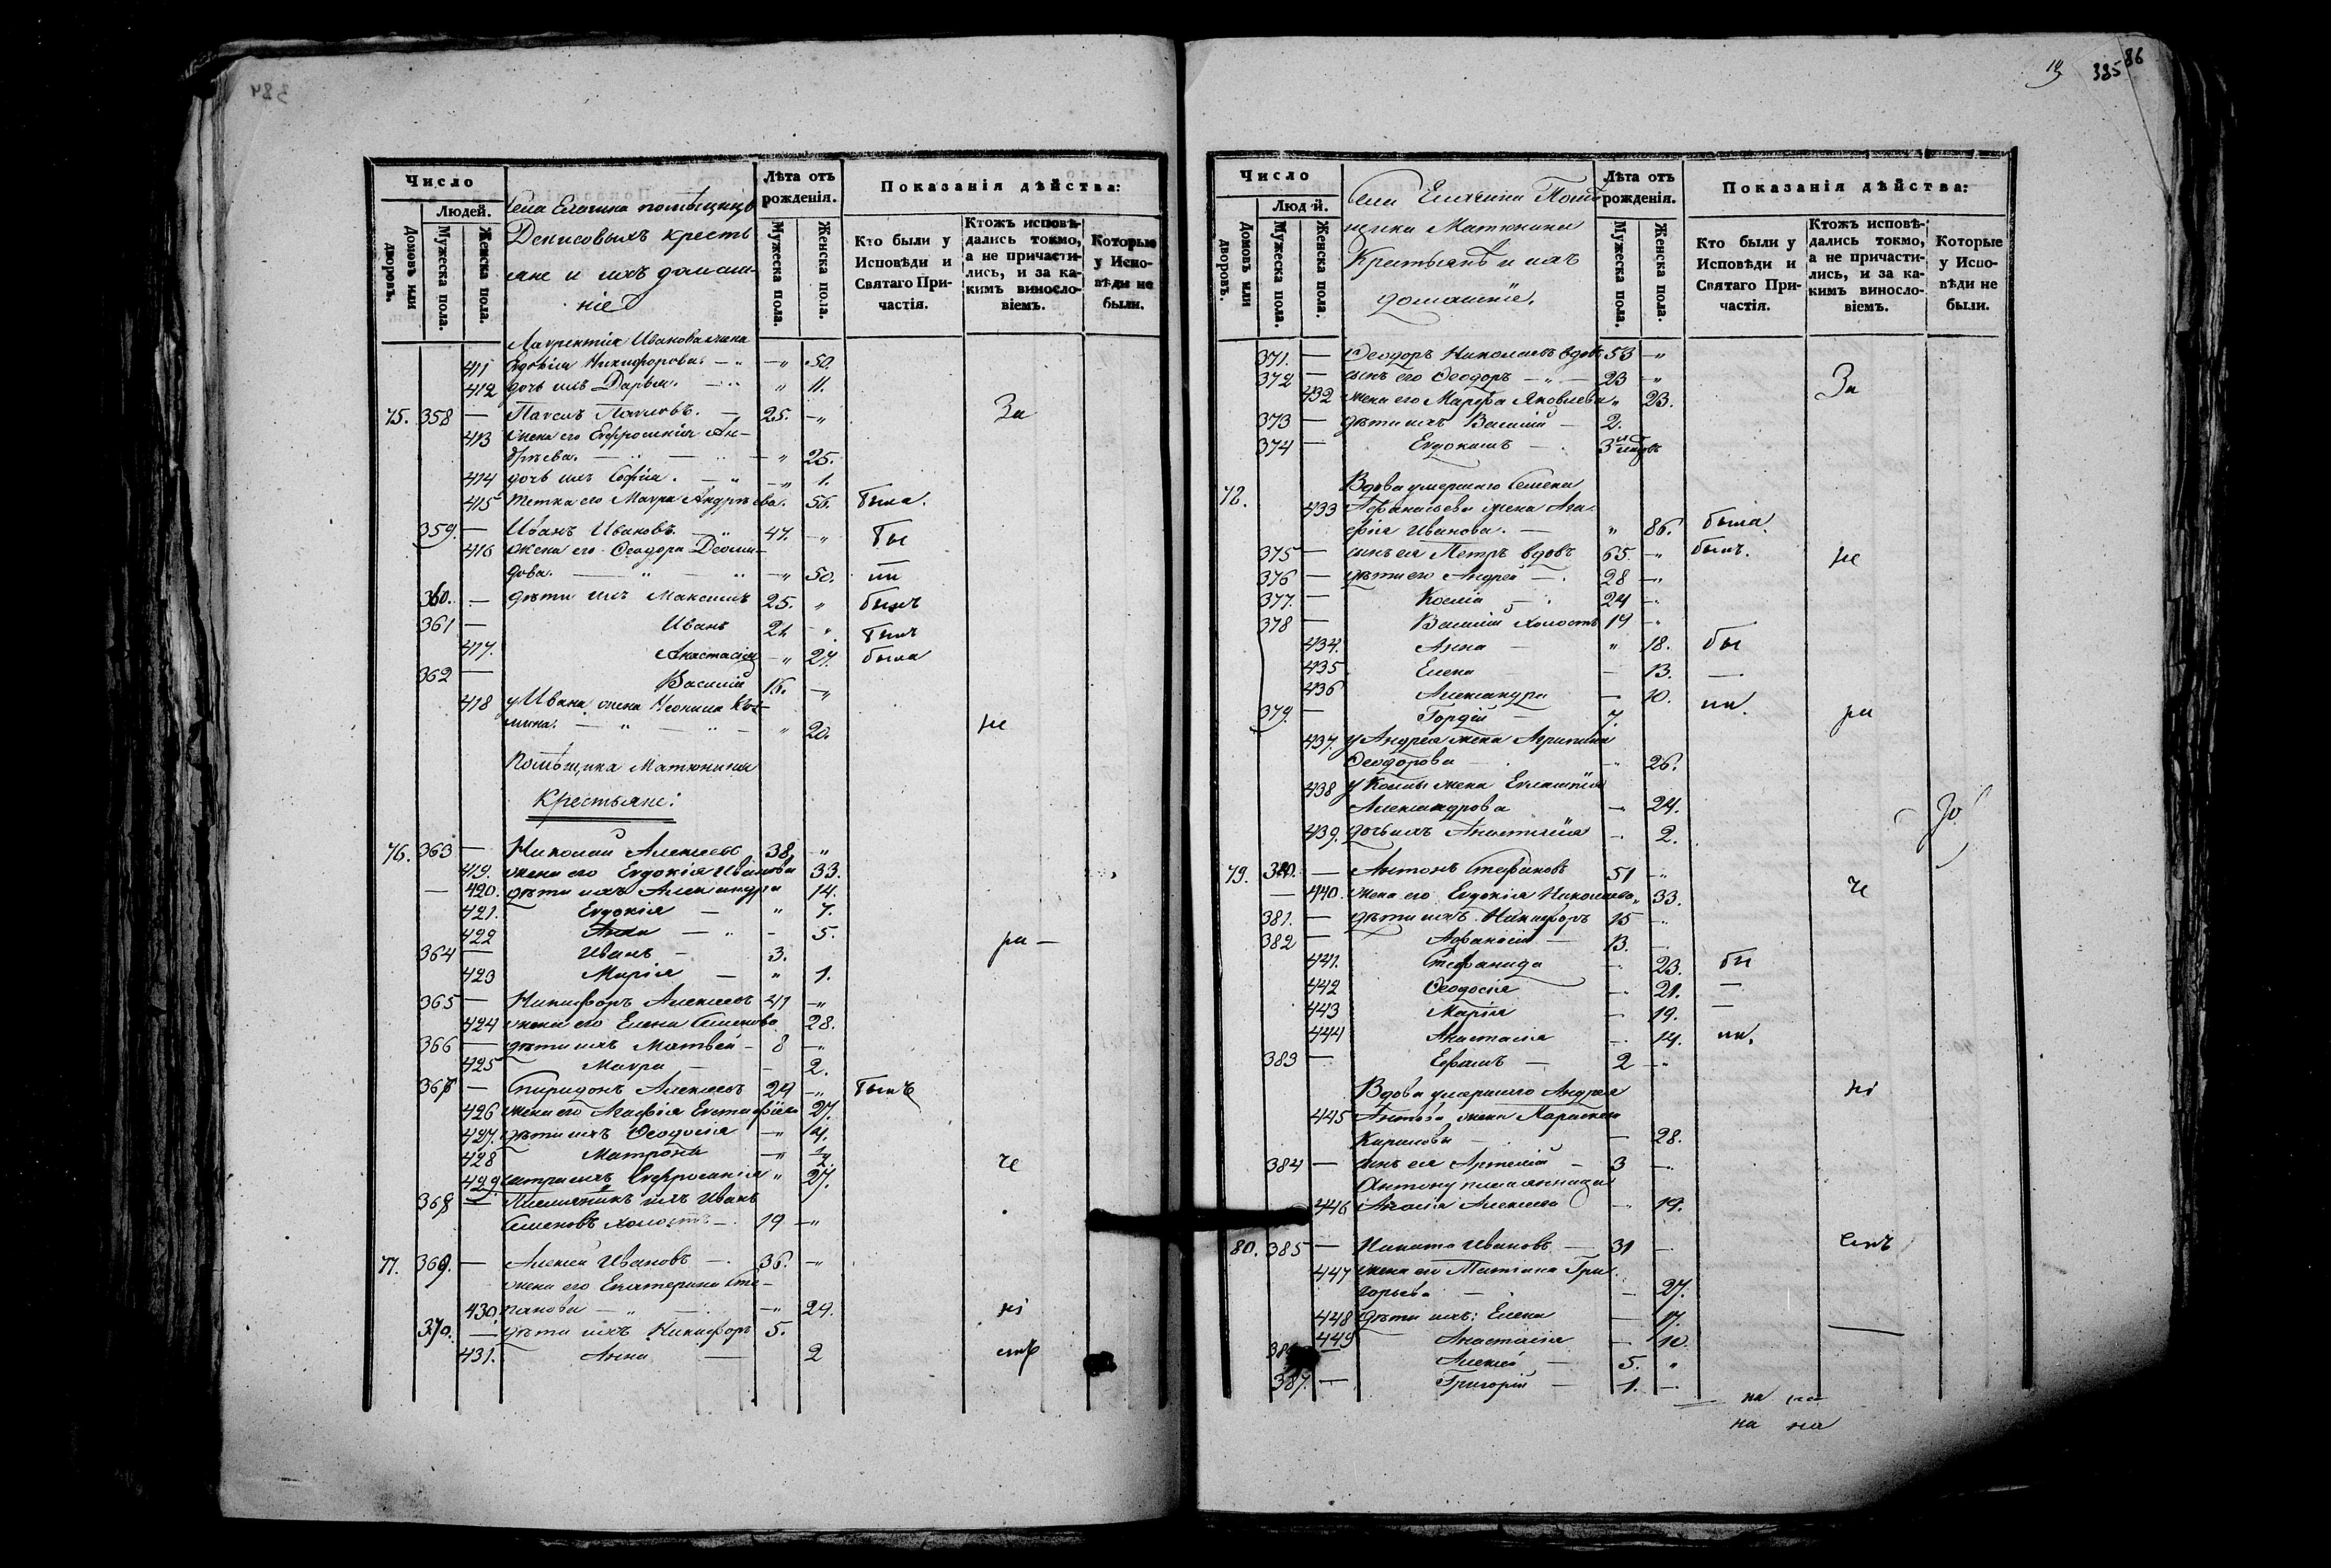 384
Число
Людей.
Домовъ или дворовъ.
Мужеска пола.
Женска пола.
Села Елагина помѣщицъ
Денисовыхъ кресть
яне и ихъ домаш-
ніе
Лѣта отъ рожденія.
Мужеска пола.
Женска пола.
Показанія дѣйства:
Кто были у Исповѣди и Святаго Причастія.
Ктожъ исповѣ-
дались токмо,
а не причасти-
лись, и за ка-
кимъ винosло-
віемъ.
Которые
у Испо-
вѣди не
были.
Лаврентія Иванова жена
411 Евдокія Никифорова. — " — " 50.
412 дочь ихъ Дарья. — " " 11.
75. 358 — Павелъ Павловъ. — 25. — " За
413 жена его Евфросинія Ан-
дреева. — " — " — " 25.
414 дочь ихъ Софія. — " — " 1.
415 тетка его Мавра Андреева. 56. была.
359. — Иванъ Ивановъ. — " 47. — " бы
416 жена его Ѳеодора Деоми-
дова. — " — " — " 50. ли
360. — дѣти ихъ Максимъ 25. " былъ
361 — Иванъ 21. " былъ
417. Анастасія — " 24. была
362 — Василій 16. — "
418 у Ивана жена Неонила Козь-
мина. — " — " — " 20. не
Помѣщика Матюнина
Крестьяне:
76. 363 — Николай Алексѣевъ 38. "
419. жена его Евдокія Иванова 33.
— 420. дѣти ихъ Александра 14.
421. Евдокія — " 7.
422 Анна — " - 5. ра —
364 — Иванъ — 3.
423 Марія — " 1.
365 — Никифоръ Алексѣевъ 41 — "
424 жена его Елена Семенова 28.
366 — дѣти ихъ Матвей — 8 — "
425 Мавра — - 2.
367 — Спиридонъ Алексѣевъ 29 — " былъ
426 жена его Агафія Евстафіева 27.
427. дѣти ихъ Ѳеодосія — " 4.
428 Матрона — " ½ че
429. сестра ихъ Евфросинія " 27.
368 — Племянникъ ихъ Иванъ
Семеновъ холостъ — 19 — "
77. 369. — Алексѣй Ивановъ — 36. — "
жена его Екатерина Сте-
430. панова — " — — " 29. ні
370. — дѣти ихъ Никифоръ 5.
431. Анна — 2
19 385 86
Число
Людей.
Домовъ или дворовъ.
Мужеска пола.
Женска пола.
Села Елагина Помѣ
щика Матюнина
Крестьянѣ и ихъ
домашніе.
Лѣта отъ рожденія.
Мужеска пола.
Женска пола.
Показанія дѣйства:
Кто были у Исповѣди и Святаго Причастія.
Ктожъ исповѣ-
дались токмо,
а не причасти-
лись, и за ка-
кимъ винosло-
віемъ.
Которые
у Испо-
вѣди не
были.
371. — Ѳеодоръ Николаевъ вдовъ 53 — "
372 — сынъ его Ѳеодоръ — " — 23 — " За
432 жена его Марфа Яковлева " 23.
373 — дѣти ихъ Василій — 2.
374 — Евдокимъ — 3
Вдова умершаго Семена
433 Афанасьева жена Ага-
фія Иванова. — " 86. была.
375 — сынъ ея Петръ вдовъ 65 — " былъ. не
376 — дѣти его Андрей — 28 — "
377. — Косма — 24 — "
378 — Василій холостъ 19 — "
434. Анна — " 18. бы
435 Елена — 13. —
436 Александра — 10. ли.
379. — Гордій — 7. ра
437. у Андрея жена Агрипина
Ѳеодорова — " 26.
438 у Космы жена Евлампія
Александрова — 24.
439. дочь ихъ Анастасія — 2.
79. 380. — Антонъ Стефановъ 51 — "
— 440. жена его Евдокія Николаева " 33. че
381. — дѣти ихъ Никифоръ 15 — "
382 — Афанасій — 13. —
441. Стефанида — 23. бы
442 Ѳеодосія — 21. —
443 Марія — 19. —
444 Анастасія — 14. ли.
383 — Ефимъ — 2 — "
Вдова умершаго Андрея ні
445 Антонова жена Параскева
Кирилова — — 28.
384 — сынъ ея Артемій — 3 —
Антону племянница
446 Алексѣева — 19.
80. 385 — Никита Ивановъ — 31 — емъ
447 жена его Татіана Гри-
горьева — — 27.
448 дѣти ихъ: Елена — 17.
449 Анастасія — 10.
386 — Алексѣй — 5. "
387. — Григорій — 1. —
на
на на